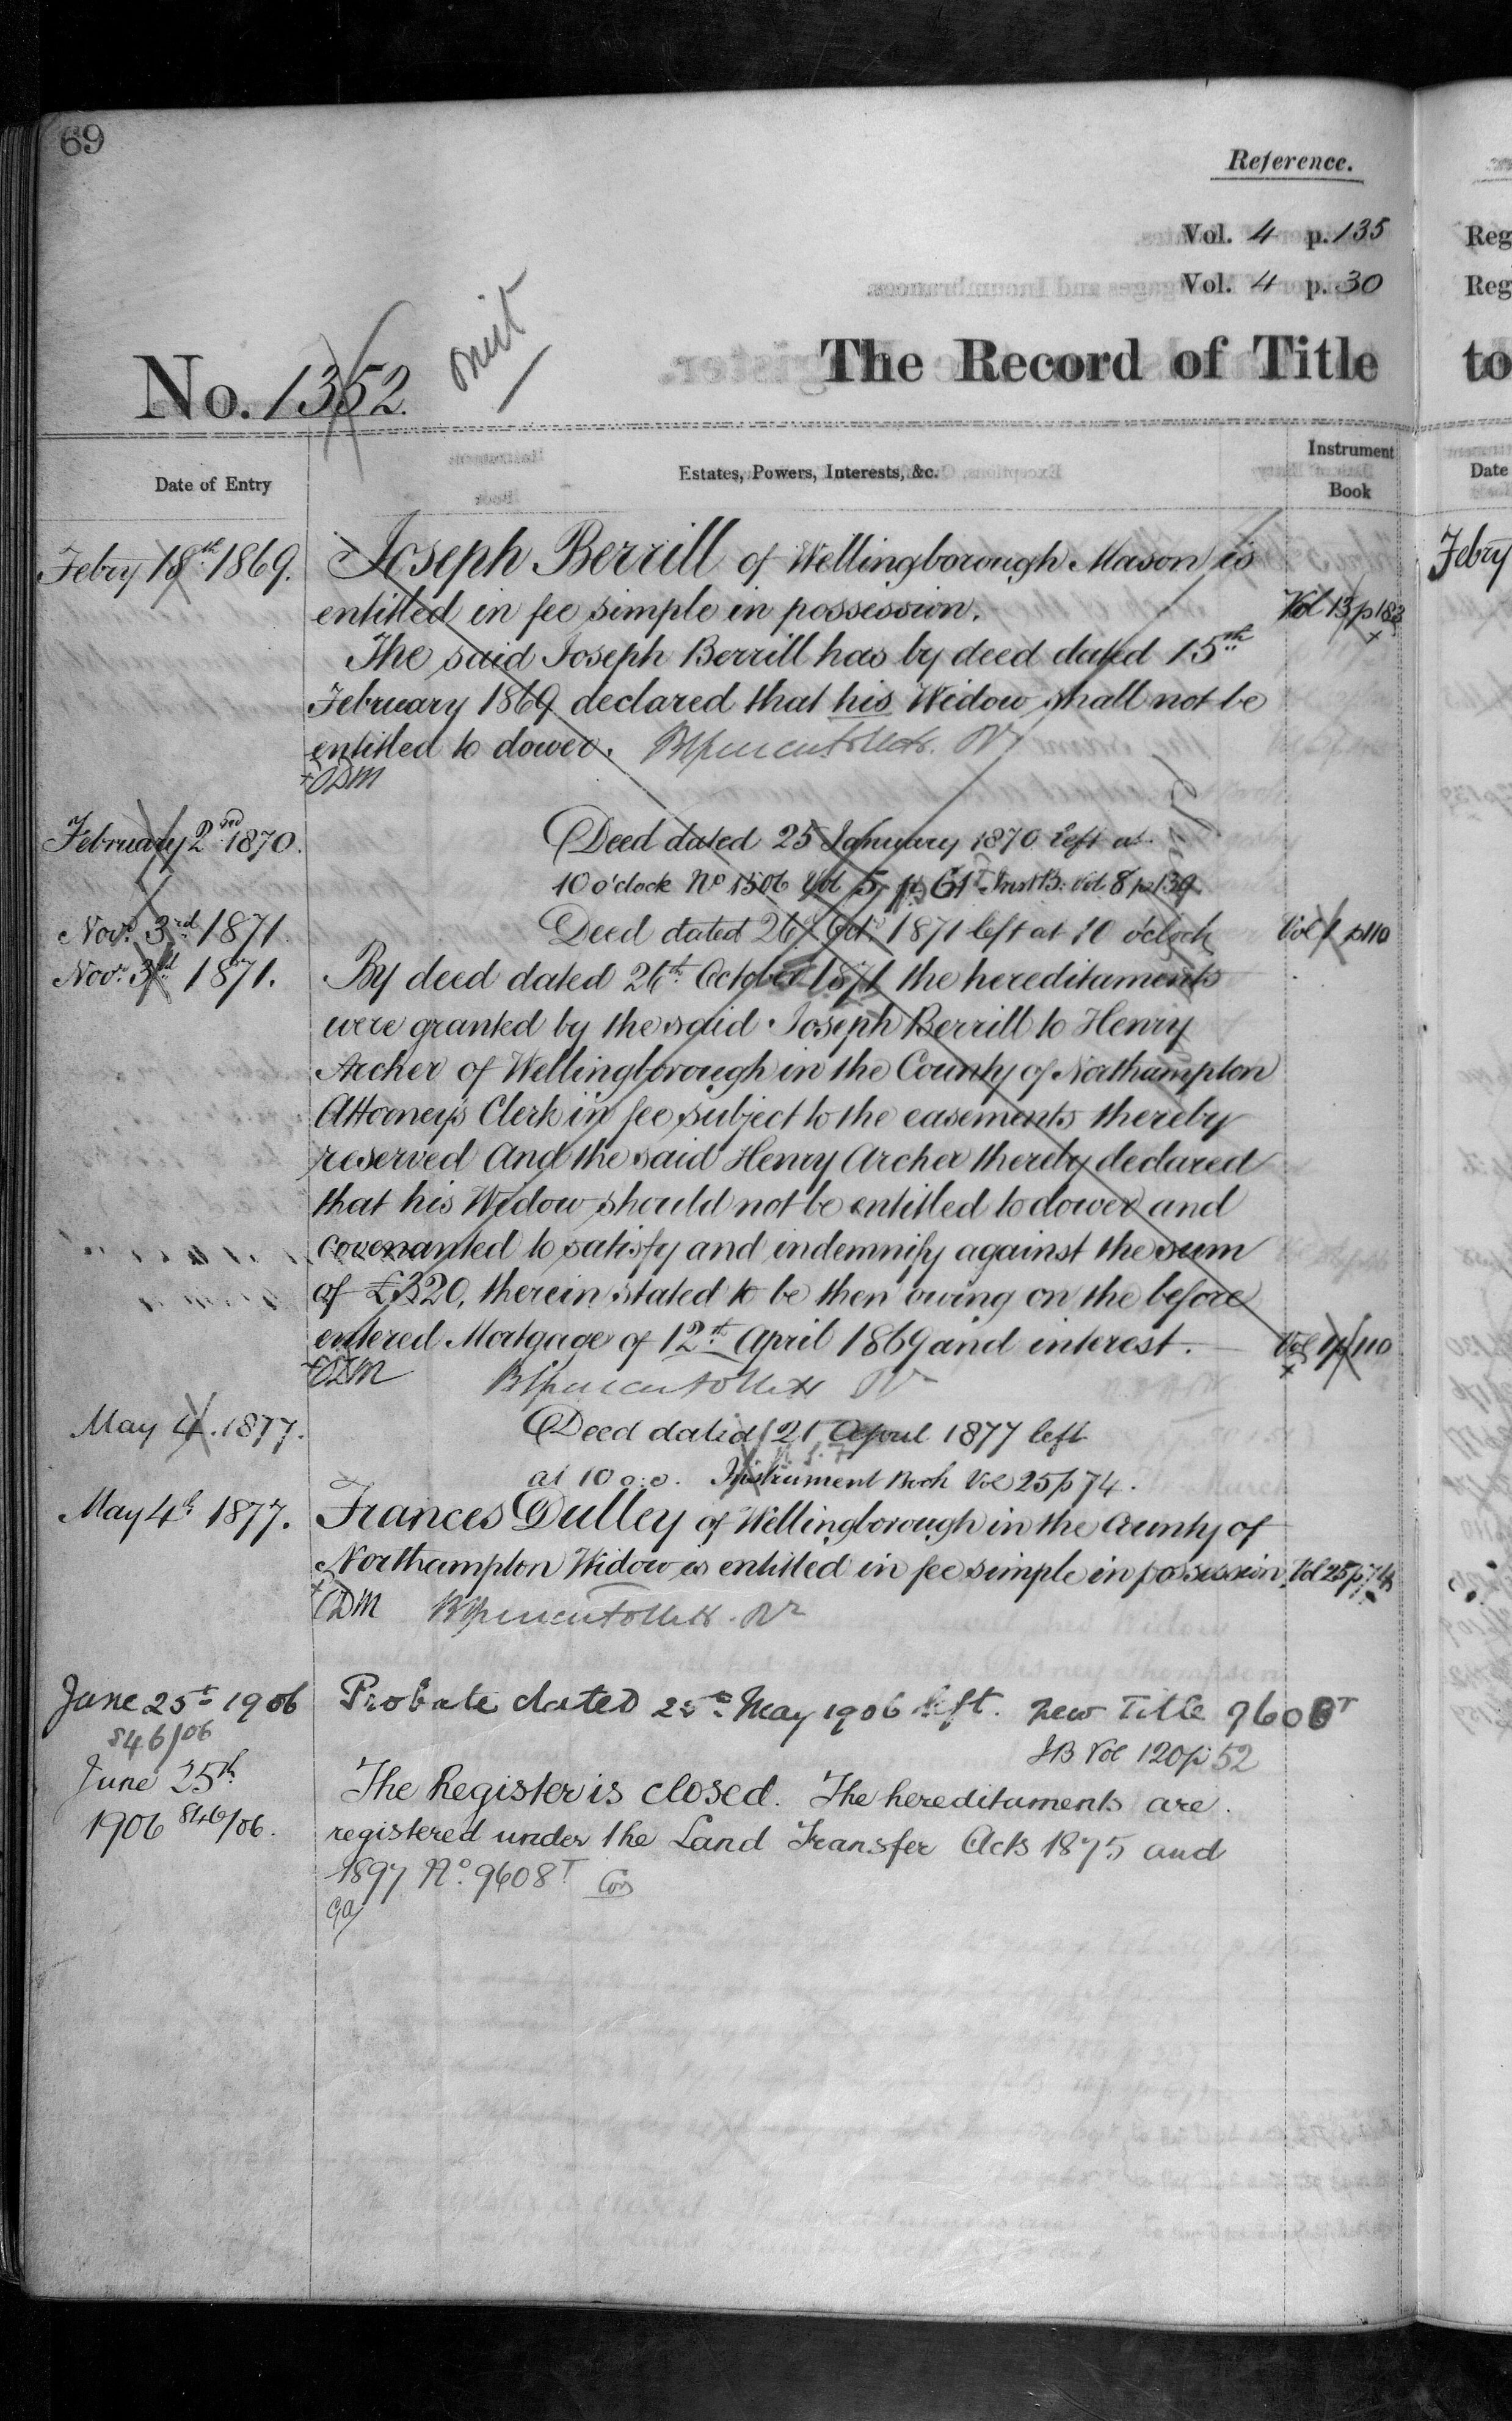 69
Reference.
Vol. 4 p. 135
Vol. 4 p. 30
No. 1352.
omit
The Record of Title
Date of Entry
Estates, Powers, Interests, &c.
Instrument Book
Febry 18th 1869.
Joseph Berrill of Wellingborough Mason is
entitled in fee simple in possession.
Vol 13 p 183
The said Joseph Berrill has by deed dated 15th
February 1869 declared that his Widow shall not be
entitled to dower.
February 2nd 1870.
Deed dated 25 January 1870 left at
10 o'clock No 1506 Vol 5, p. 61 Inst B: Vol 8 p 139.
Novr 3rd 1871
Deed dated 26th Octr 1871 left at 10 o'clock
Vol 1 p110
Novr 3rd 1871.
By deed dated 26th October 1871 the hereditaments
were granted by the said Joseph Berrill to Henry
Archer of Wellingborough in the County of Northampton
Attorney's Clerk in fee subject to the easements thereby
reserved And the said Henry Archer thereby declared
that his Widow should not be entitled to dower and
covenanted to satisfy and indemnify against the sum
of £320, therein stated to be then owing on the before
entered Mortgage of 12th April 1869 and interest.
Vol 1 p 110
May 4. 1877.
Deed dated 21 April 1877 left
at 10 o.c. Instrument Book Vol 25 p 74.
May 4th 1877.
Frances Dulley of Wellingborough in the County of
Northampton Widow is entitled in fee simple in possession.
Vol 25 p 74
June 25th 1906
846/06
Probate dated 25th May 1906 left. New Title 9608T
IB Vol 120 p 52
June 25th
1906 846/06.
The Register is closed. The hereditaments are
registered under the Land Transfer Acts 1875 and
1897 No. 9608T
Reg
Reg
to
Date
Febry